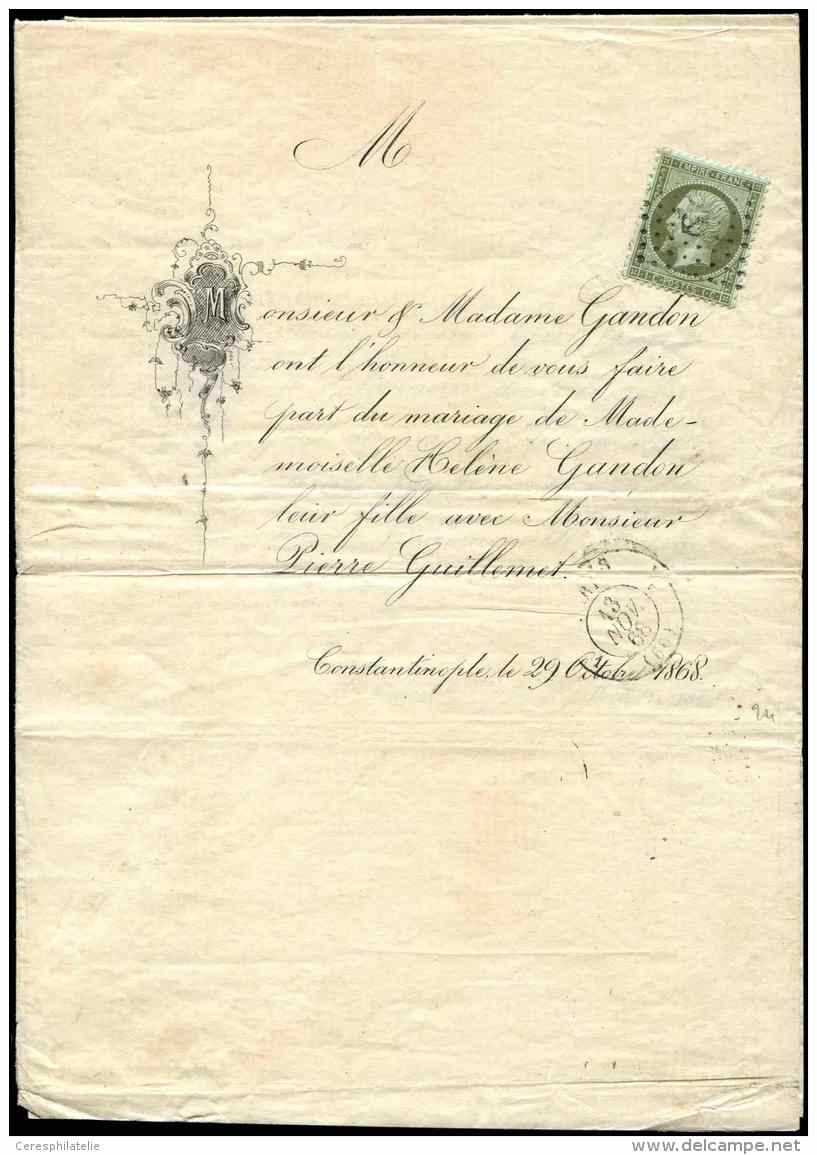 M
EMPIRE FRANC
Monsieur & Madame Gandon
ont l'honneur de vous faire
part du mariage de Made-
moiselle Helène Gandon
leur fille avec Monsieur
Pierre Guillemet.
13
NOV.
68
(60)
Constantinople, le 29 Octobre 1868.
24
Ceresphilatelie
www.delcampe.net